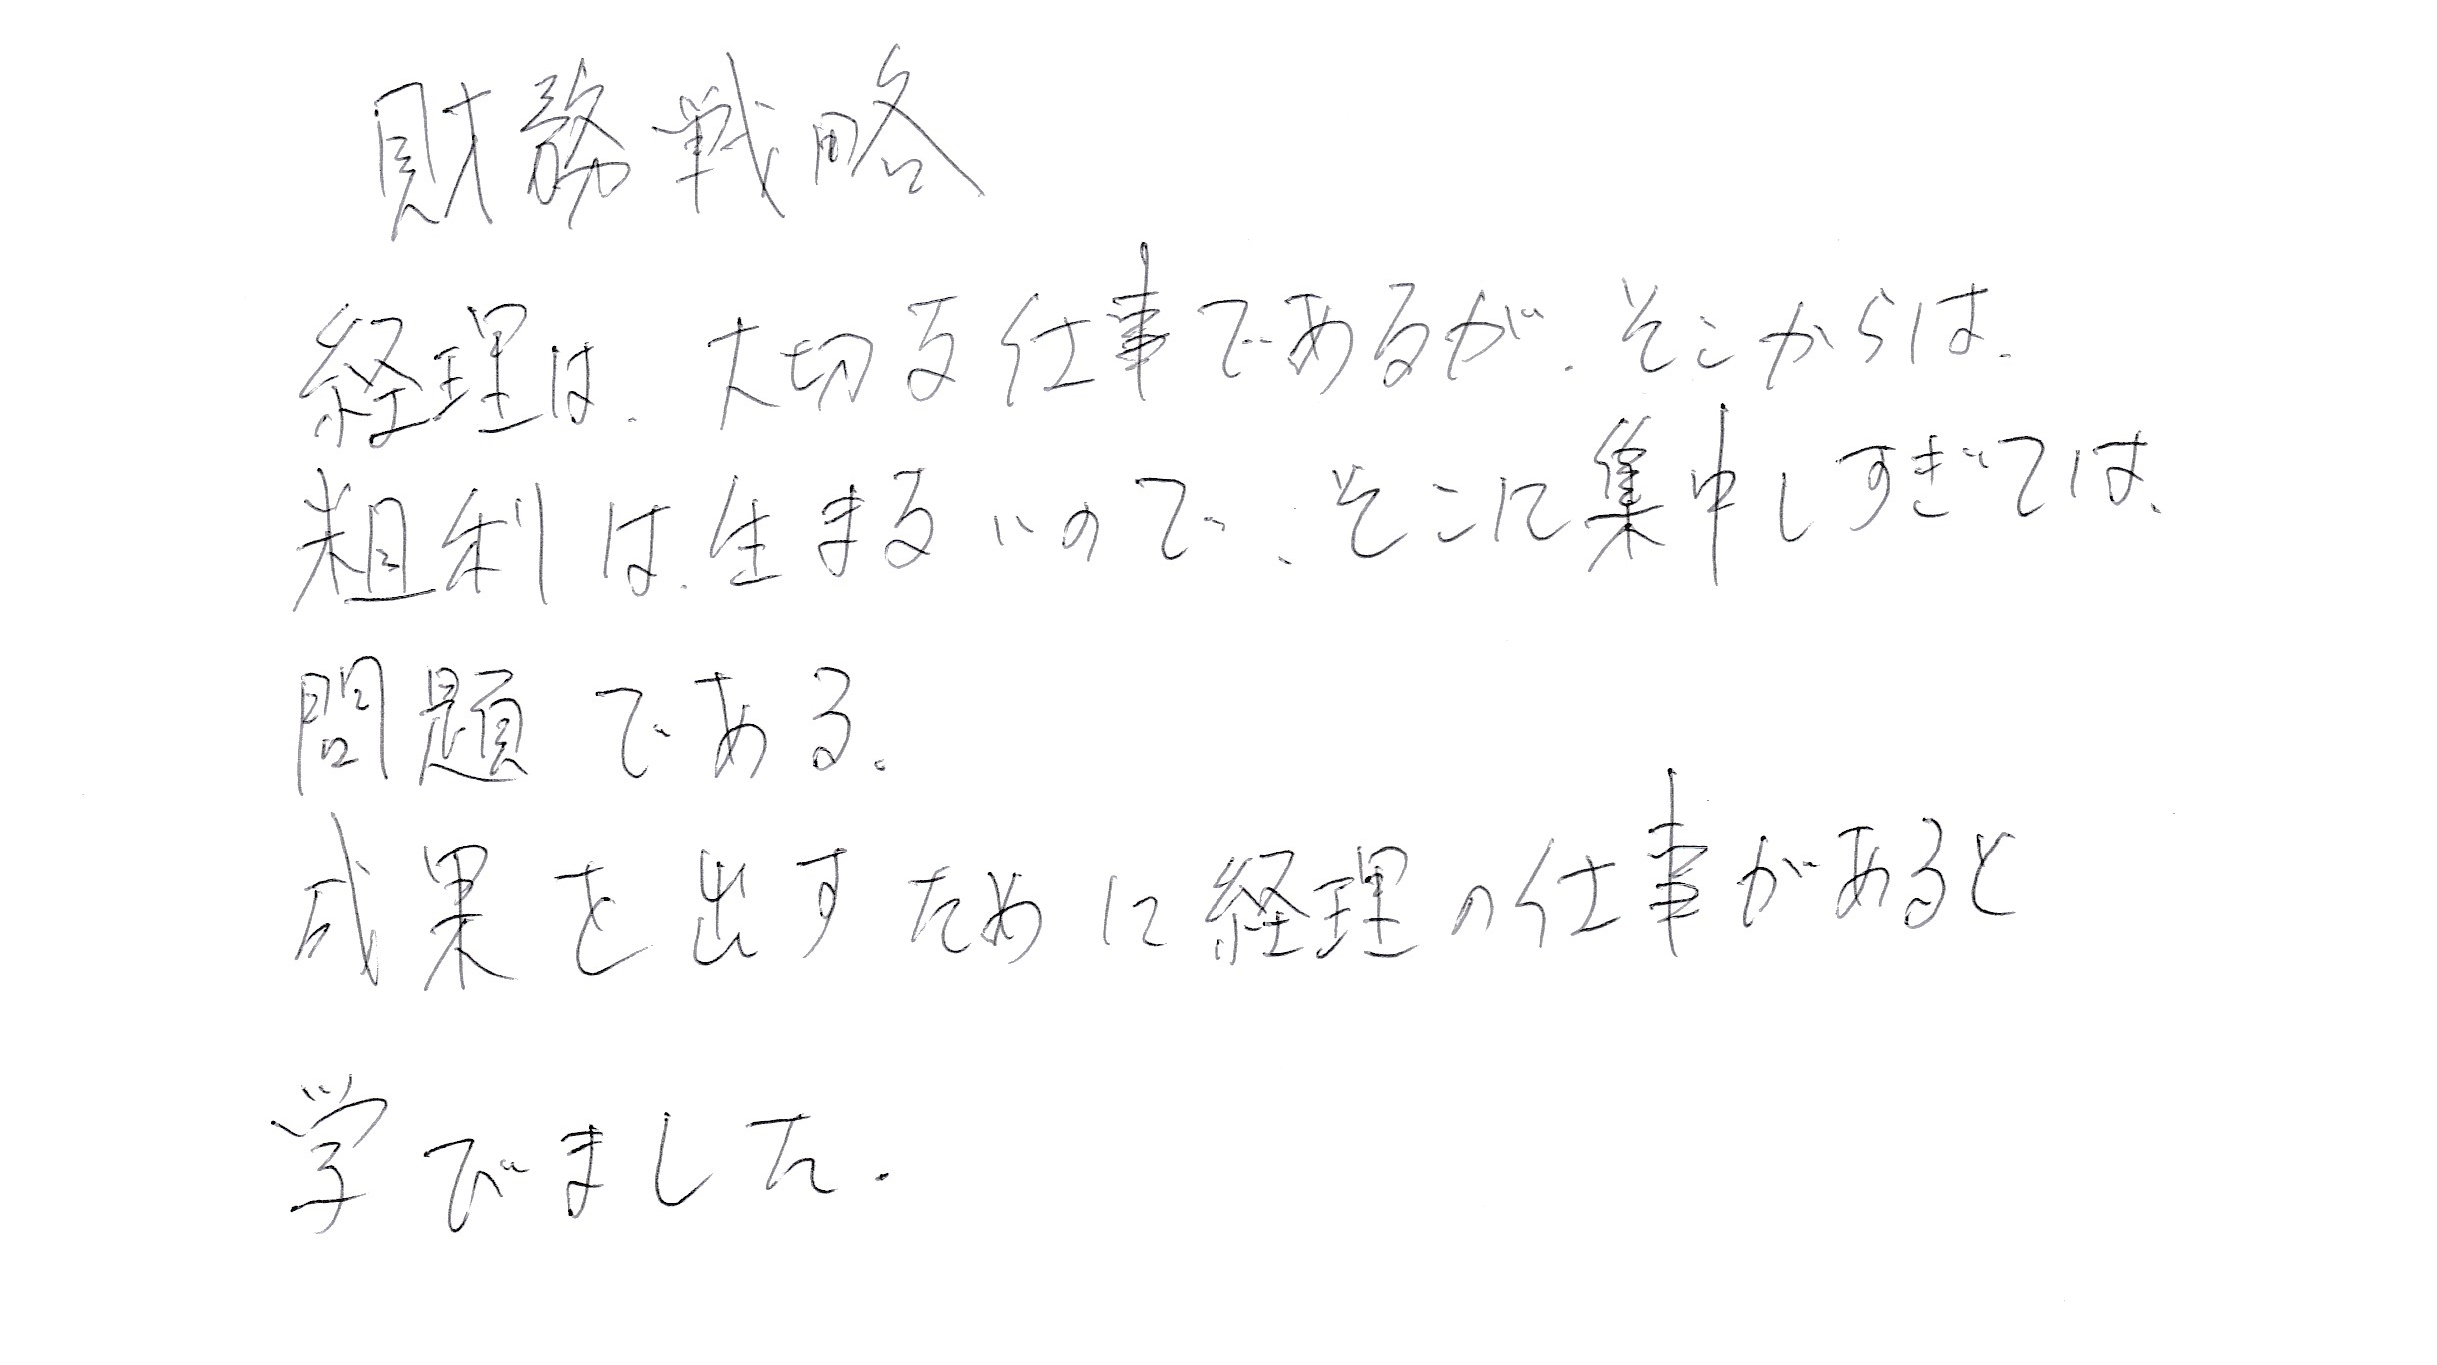 財務戦略
経理は、大切な仕事であるが、そこからは、
粗利は、生まないので、そこに集中しすぎては、
問題である。
成果を出すために経理の仕事があると
学びました。